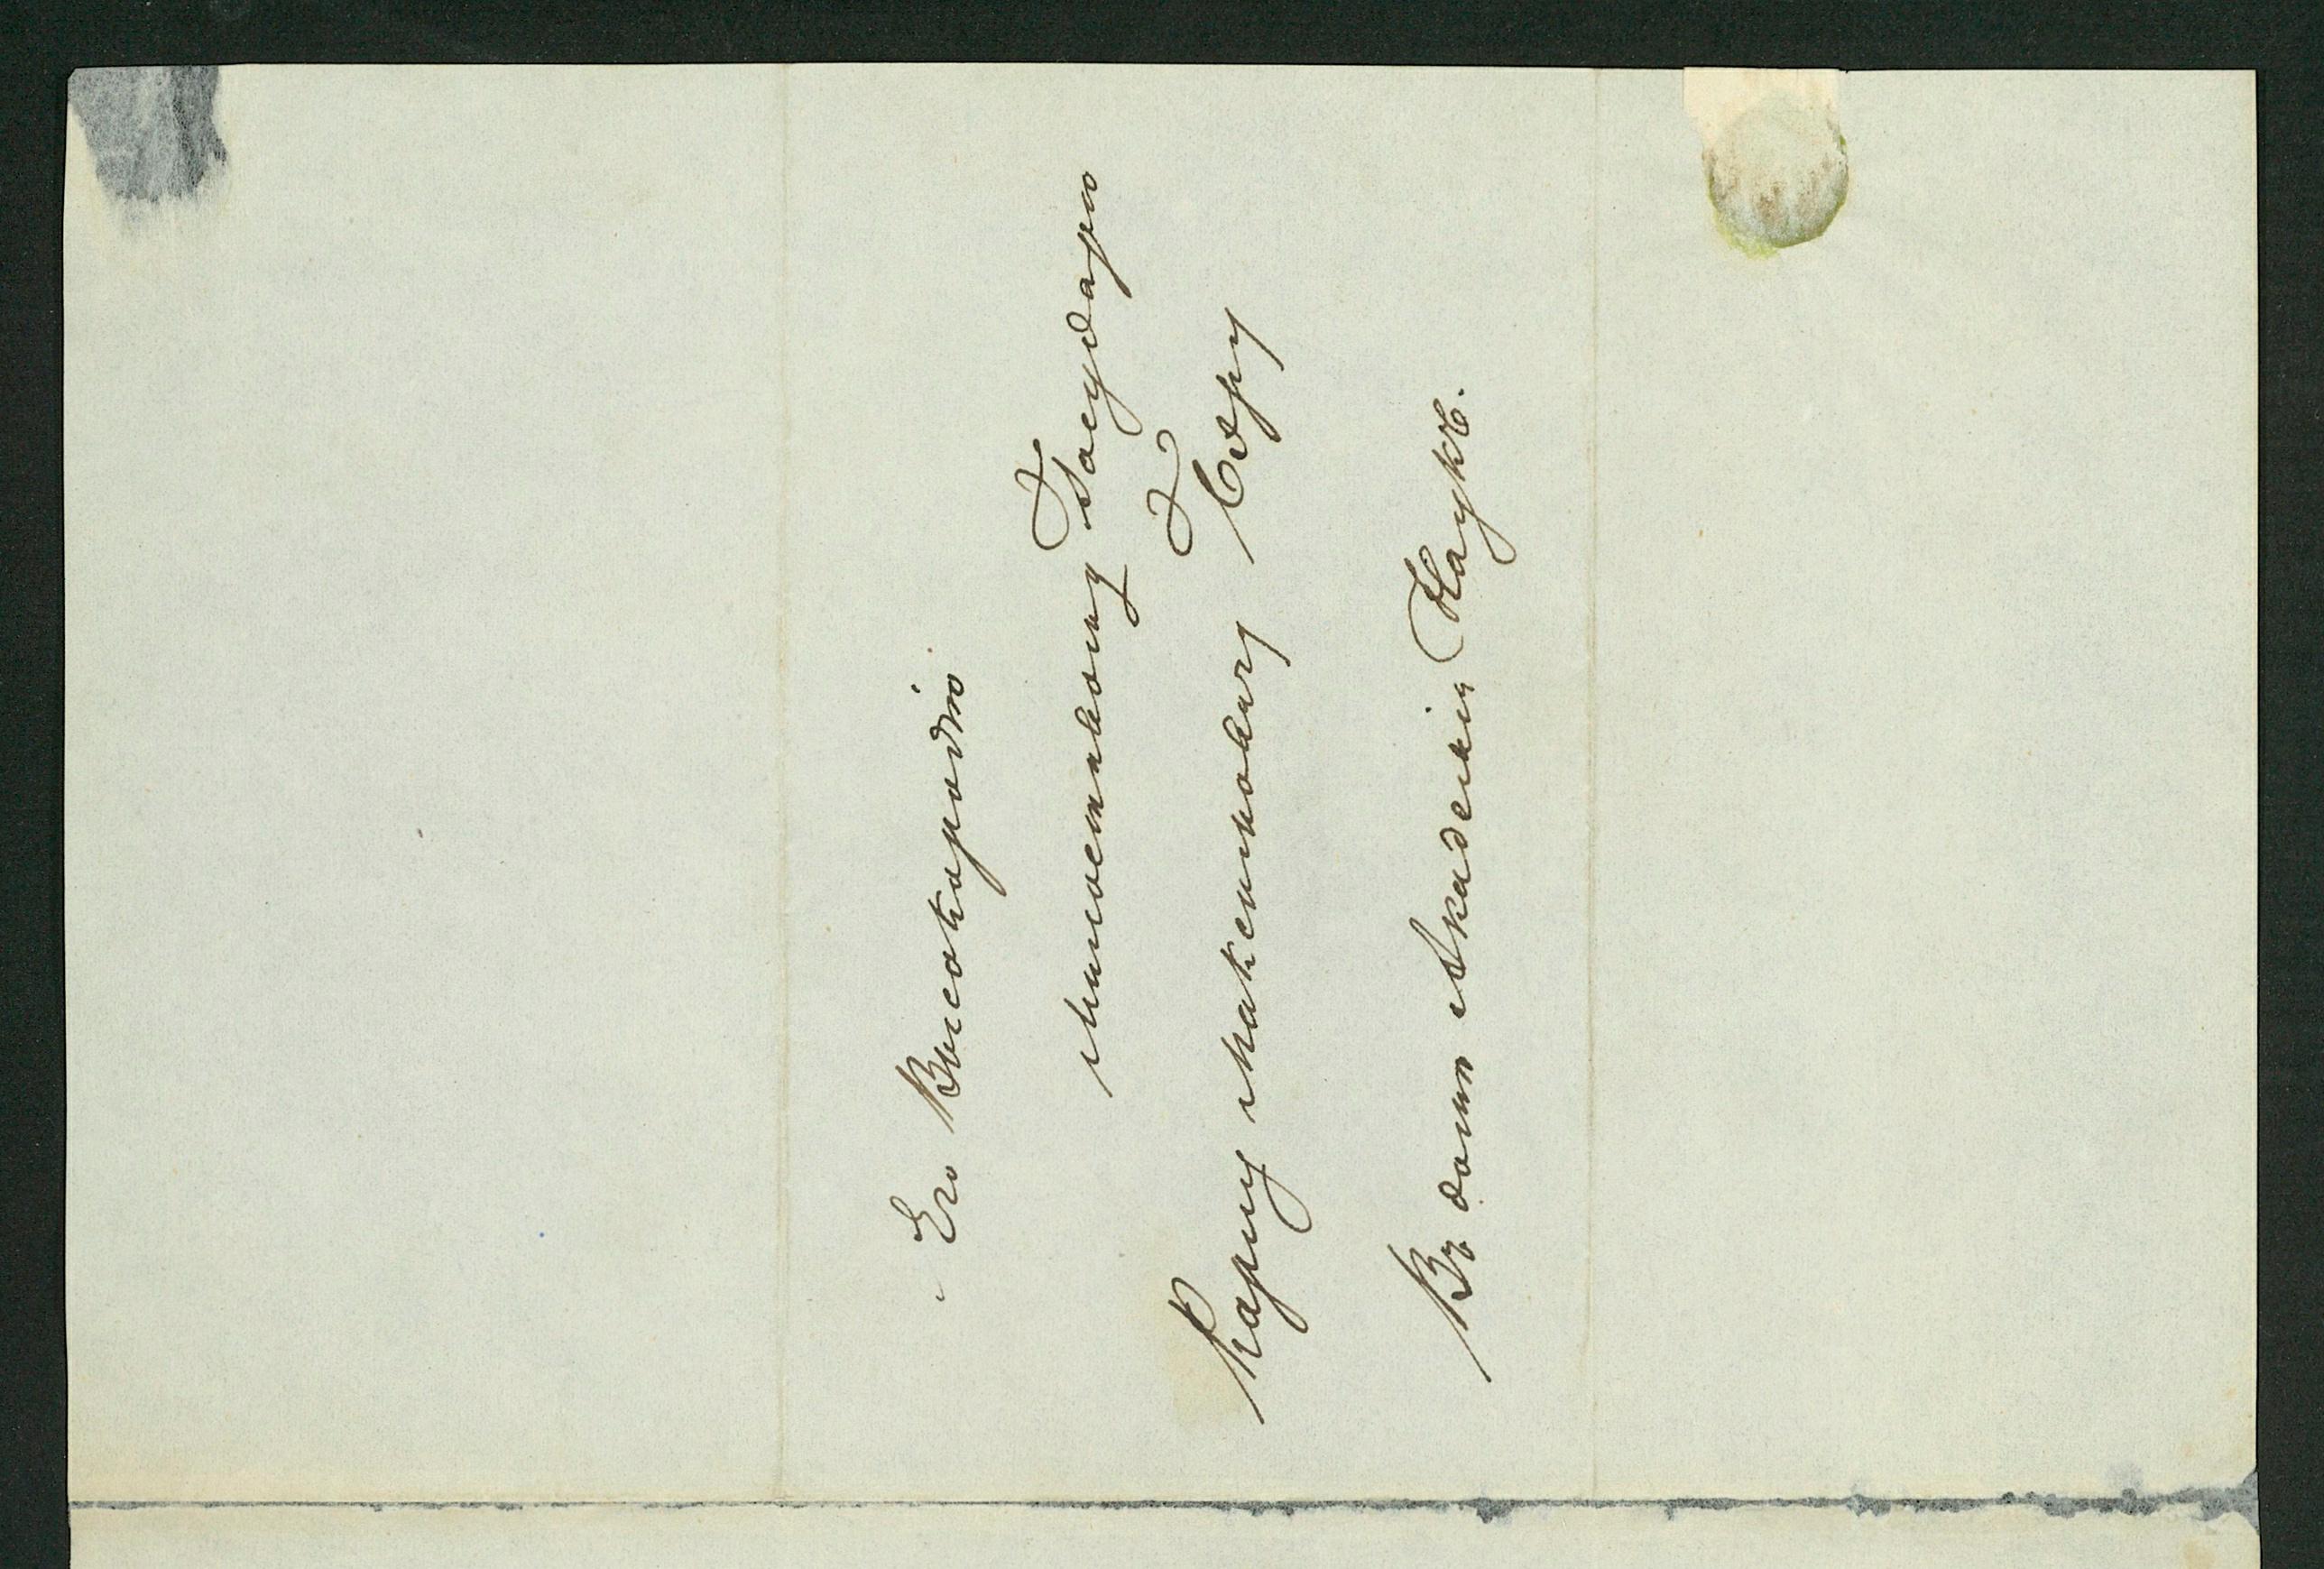 Его Высокородію
Милостивому Государю
Карлу Максимовичу Бэру
Въ домѣ Академіи Наукъ.